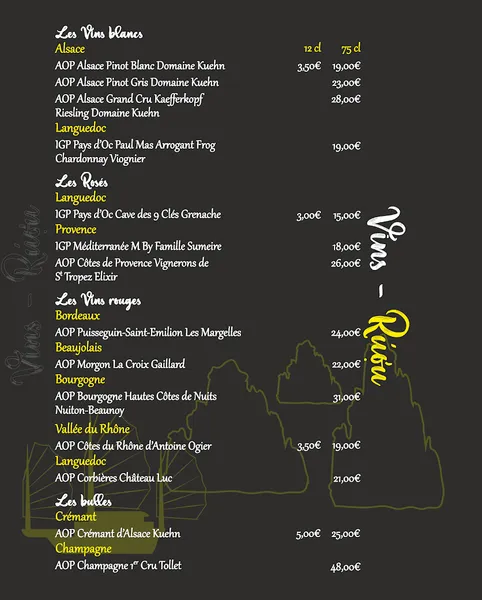 Les Vins blancs
Alsace 12 cl 75 cl
AOP Alsace Pinot Blanc Domaine Kuehn 3,50€ 19,00€
AOP Alsace Pinot Gris Domaine Kuehn 23,00€
AOP Alsace Grand Cru Kaefferkopf 28,00€
Riesling Domaine Kuehn
Languedoc
IGP Pays d'Oc Paul Mas Arrogant Frog 19,00€
Chardonnay Viognier
Les Rosés
Languedoc
IGP Pays d'Oc Cave des 9 Clés Grenache 3,00€ 15,00€
Provence
IGP Méditerranée M By Famille Sumeire 18,00€
AOP Côtes de Provence Vignerons de 26,00€
St Tropez Elixir
Les Vins rouges
Bordeaux
AOP Puisseguin-Saint-Emilion Les Margelles 24,00€
Beaujolais
AOP Morgon La Croix Gaillard 22,00€
Bourgogne
AOP Bourgogne Hautes Côtes de Nuits 31,00€
Nuiton-Beaunoy
Vallée du Rhône
AOP Côtes du Rhône d'Antoine Ogier 3,50€ 19,00€
Languedoc
AOP Corbières Château Luc 21,00€
Les bulles
Crémant
AOP Crémant d'Alsace Kuehn 5,00€ 25,00€
Champagne
AOP Champagne 1er Cru Tollet 48,00€
Vins - Rượu
Vins - Rượu